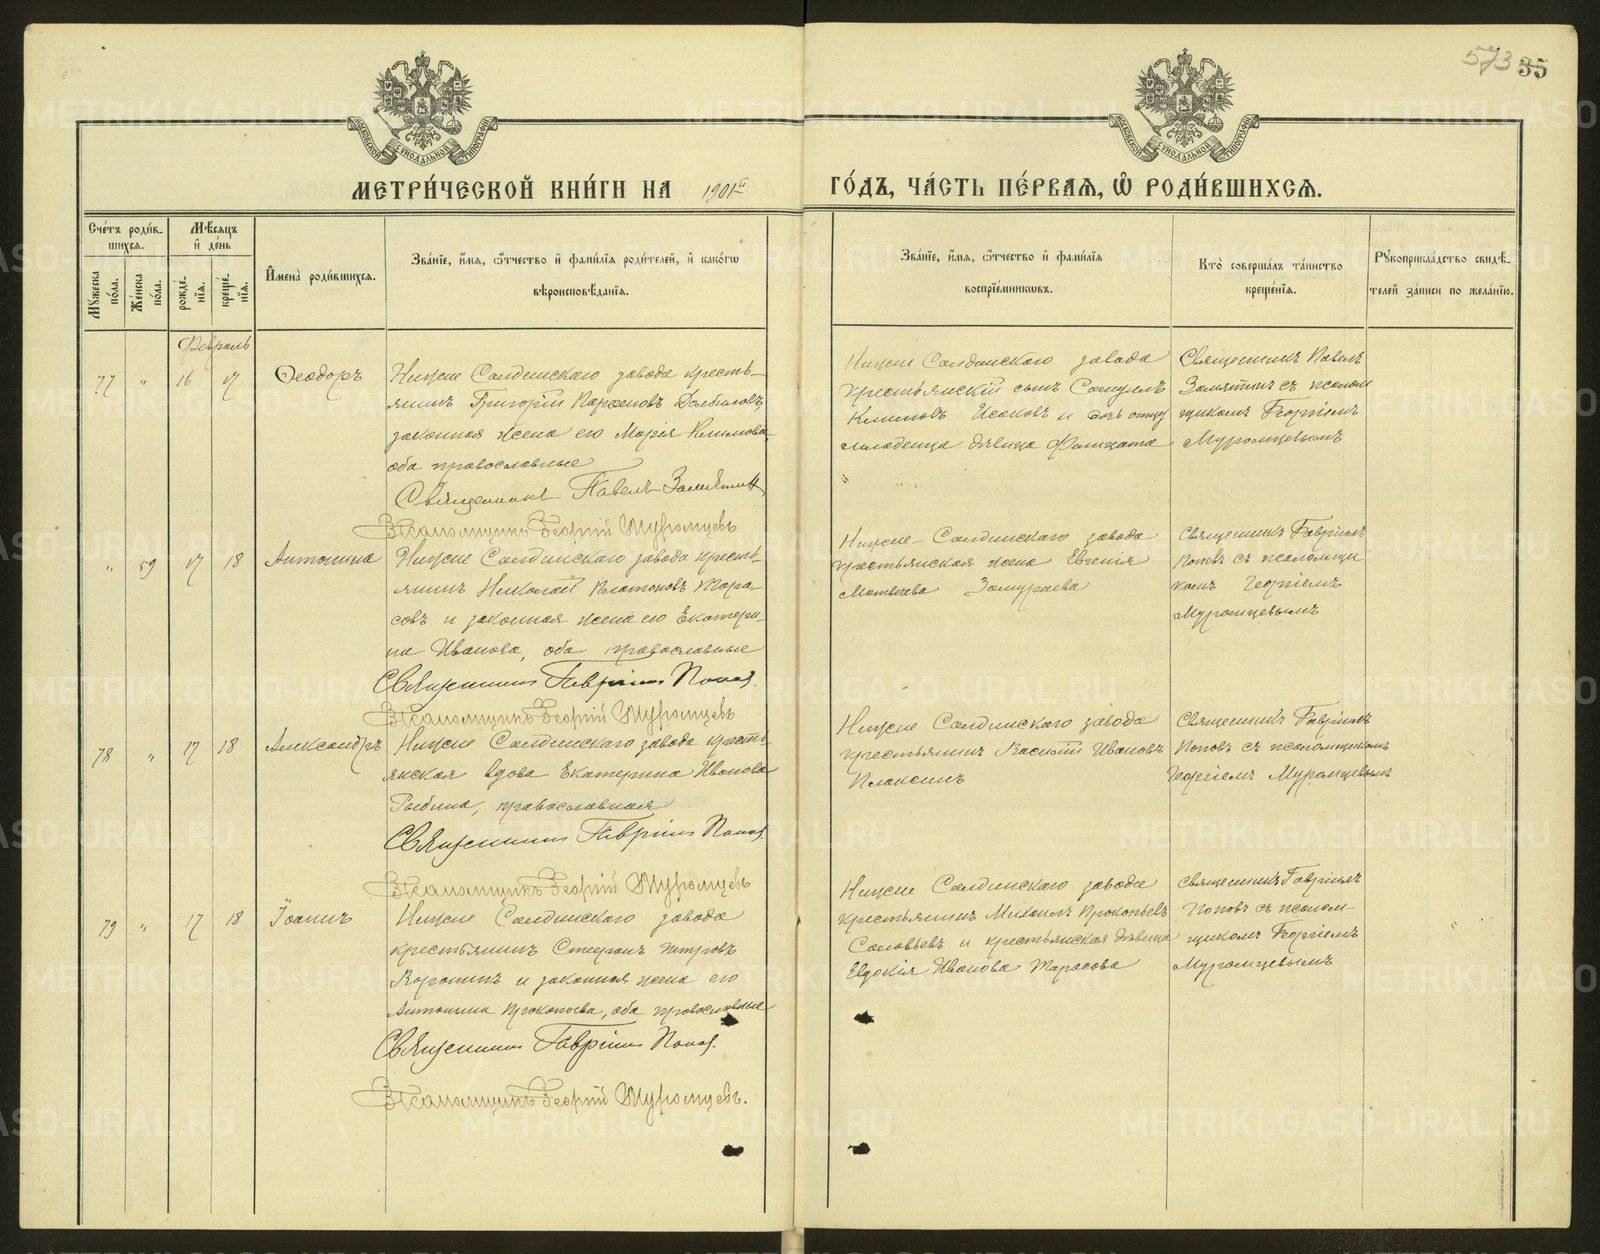 573 35
МОСКОВСКОЙ СѴНОДАЛЬНОЙ ТИПОГРАФІИ
МОСКОВСКОЙ СѴНОДАЛЬНОЙ ТИПОГРАФІИ
МЕТРИ́ЧЕСКОЙ КНИ́ГИ НА 1901й ГО́ДЪ, ЧА́СТЬ ПЕ́РВАѦ, Ѡ҆ РОДИ́ВШИХСѦ.
Сче́тъ роди́в-
шихсѧ.
Мꙋжеска по́ла.
Же́нска по́ла.
Мѣ́сѧцъ и҆ де́нь
рожде́-нїѧ.
креще́-нїѧ.
И҆мена̀ роди́вшихсѧ.
Зва́нїе, и҆́мѧ, ѻ҆́тчество и҆ фами́лїѧ роди́телей, и҆ како́гѡ
вѣроисповѣ́данїѧ.
Зва́нїе, и҆́мѧ, ѻ҆́тчество и҆ фами́лїѧ
воспрїе́мникѡвъ.
Кто̀ соверша́лъ та́инство
креще́нїѧ.
Рꙋкоприкла́дство свидѣ́-
телей за́писи по жела́нїю.
Февраль
77 " 16 17 Ѳеодоръ
Нижне Салдинскаго завода кресть-
янинъ Григорій Парѳеновъ
законная жена его Марія Климова,
оба православные
Священникъ Павелъ Замятин
Псаломщикъ Георгій Муромцевъ
Нижне Салдинскаго завода
крестьянскій сынъ Самуилъ
Климовъ Исаковъ и дочь отца
младенца дѣвица Фелицата
Священникъ Павелъ
Замятинъ съ псалом
щикомъ Георгіемъ
Муромцевымъ
" 59 17 18 Антонина
Нижне Салдинскаго завода кресть-
янинъ Николай Платоновъ Тара-
совъ и законная жена его Екатери-
на Иванова, оба православные
Священникъ Гавріилъ Попов.
Псаломщикъ Георгій Муромцевъ
Нижне-Салдинскаго завода
крестьянская жена Евгенія
Матвѣева Замураева
Священникъ Гавріилъ
Поповъ съ псаломщи
комъ Георгіемъ
Муромцевымъ
78 " 17 18 Александръ
Нижне Салдинскаго завода кресть-
янская вдова Екатерина Иванова
Рыбина, православная
Священникъ Гавріилъ Попов
Псаломщикъ Георгій Муромцевъ
Нижне Салдинскаго завода
крестьянинъ Василій Ивановъ
Плаксинъ
Священникъ Гавріилъ
Поповъ съ псаломщикомъ
Георгіемъ Муромцевымъ
79 " 17 18 Іоаннъ
Нижне Салдинскаго завода
крестьянинъ Стефанъ Петровъ
Воронинъ и законная жена его
Антонина Прокопьева, оба православные
Священникъ Гавріилъ Попов.
Псаломщикъ Георгій Муромцевъ.
Нижне Салдинскаго завода
крестьянинъ Михаилъ Прокопьевъ
Соловьевъ и крестьянская дѣвица
Евдокія Иванова Тарасова
Священникъ Гавріилъ
Поповъ съ псалом-
щикомъ Георгіемъ
Муромцевымъ
METRIKI.GASO-URAL.RU